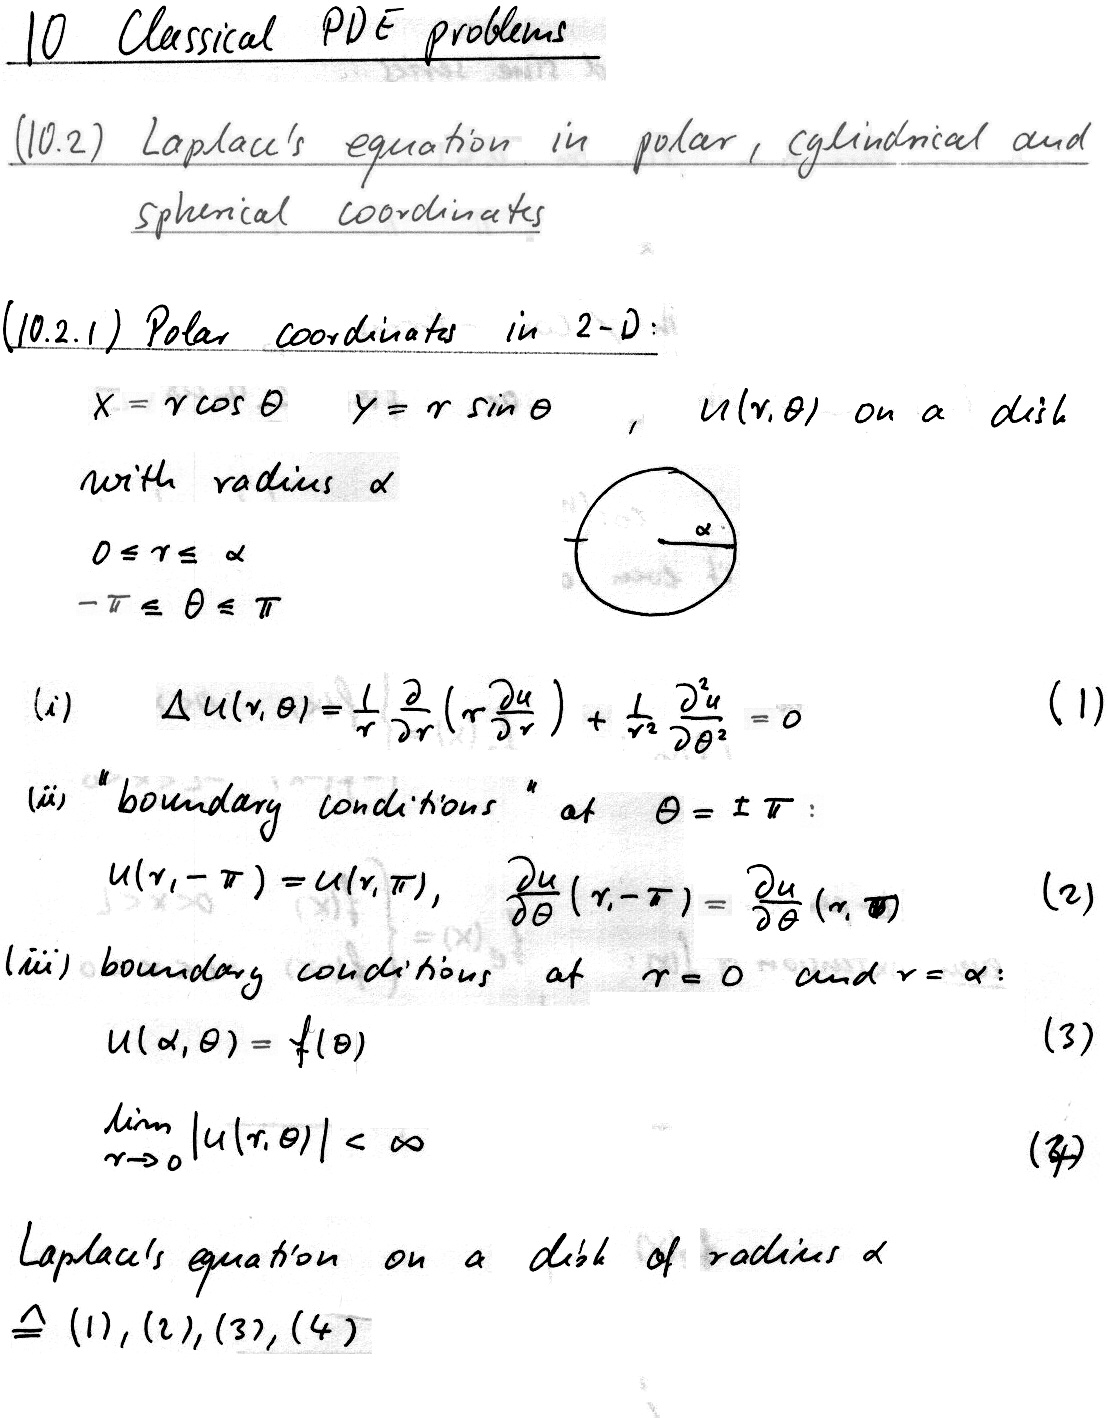 10 Classical PDE problems
(10.2) Laplace's equation in polar, cylindrical and
spherical coordinates
(10.2.1) Polar coordinates in 2-D:
x = r cos θ   y = r sin θ , u(r,θ) on a disk
with radius α
α
0 ≤ r ≤ α
-π ≤ θ ≤ π
(i) Δu(r,θ) = 1/r ∂/∂r (r ∂u/∂r) + 1/r² ∂²u/∂θ² = 0 (1)
(ii) "boundary conditions" at θ = ±π :
u(r,-π) = u(r,π), ∂u/∂θ (r,-π) = ∂u/∂θ (r,π) (2)
(iii) boundary conditions at r = 0 and r = α:
u(α,θ) = f(θ) (3)
lim r→0 |u(r,θ)| < ∞ (4)
Laplace's equation on a disk of radius α
≙ (1), (2), (3), (4)